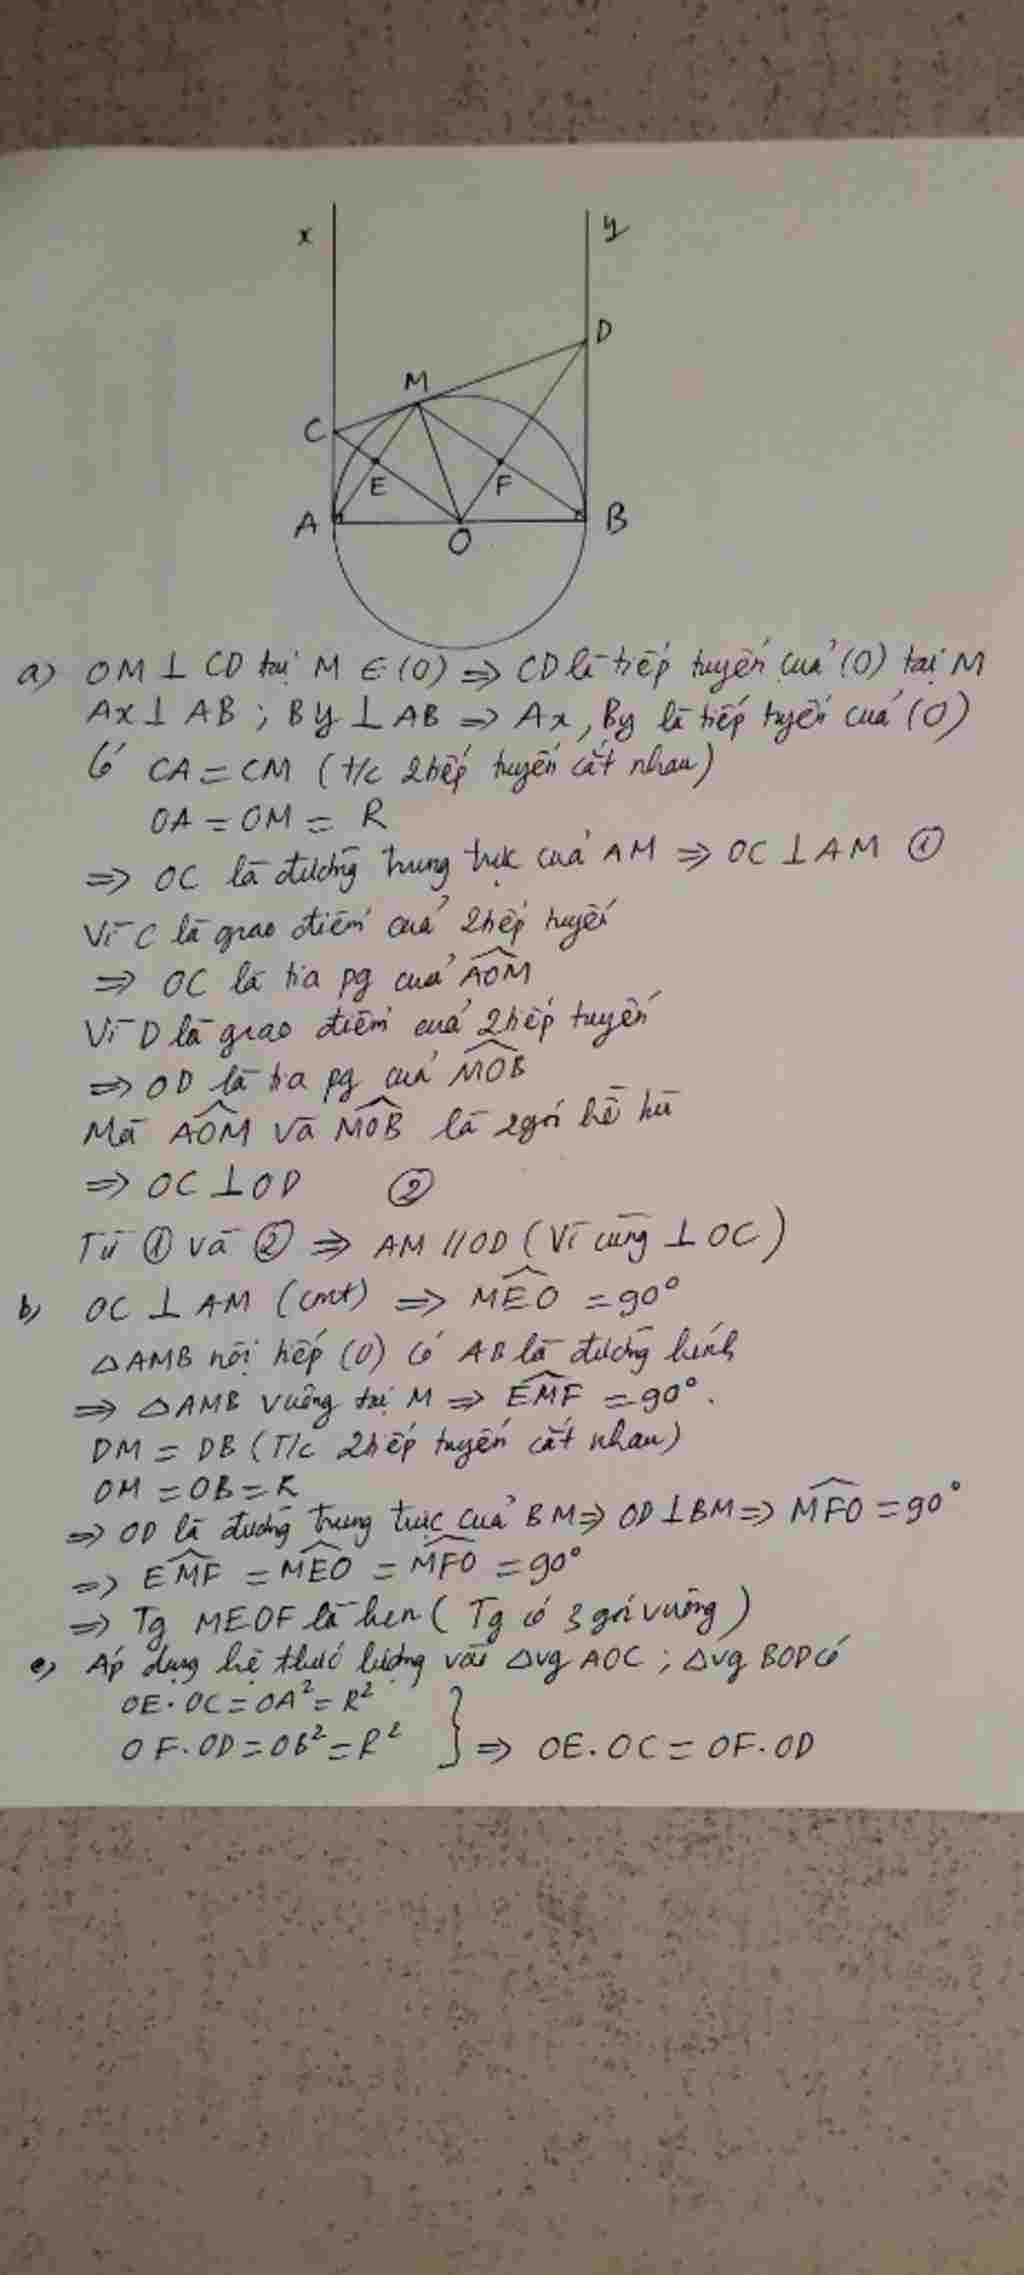 x y
D
M
C
E F
A B
O
a) OM ⊥ CD tại M ∈ (O) ⇒ CD là tiếp tuyến của (O) tại M
Ax ⊥ AB ; By ⊥ AB ⇒ Ax, By là tiếp tuyến của (O)
Có CA = CM (t/c 2 tiếp tuyến cắt nhau)
OA = OM = R
⇒ OC là đường trung trực của AM ⇒ OC ⊥ AM ①
Vì C là giao điểm của 2 tiếp tuyến
⇒ OC là tia pg của \widehat{AOM}
Vì D là giao điểm của 2 tiếp tuyến
⇒ OD là tia pg của \widehat{MOB}
Mà \widehat{AOM} và \widehat{MOB} là 2 góc kề bù
⇒ OC ⊥ OD ②
Từ ① và ② ⇒ AM // OD (Vì cùng ⊥ OC)
b) OC ⊥ AM (cmt) ⇒ \widehat{MEO} = 90°
△AMB nội tiếp (O) có AB là đường kính
⇒ △AMB vuông tại M ⇒ \widehat{EMF} = 90°.
DM = DB (T/c 2 tiếp tuyến cắt nhau)
OM = OB = R
⇒ OD là đường trung trực của BM ⇒ OD ⊥ BM ⇒ \widehat{MFO} = 90°
⇒ \widehat{EMF} = \widehat{MEO} = \widehat{MFO} = 90°
⇒ Tg MEOF là hcn (Tg có 3 góc vuông)
c) Áp dụng hệ thức lượng vào △vg AOC ; △vg BOD có
OE.OC = OA² = R²
OF.OD = OB² = R² } ⇒ OE.OC = OF.OD